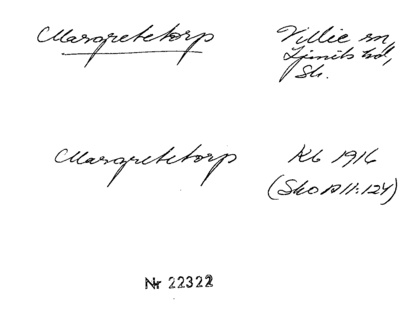 Margretetorp Villie sn,
Ljunits hd,
Sk.
Margretetorp Kb 1916
(SkO B 11:124)
Nr 22322